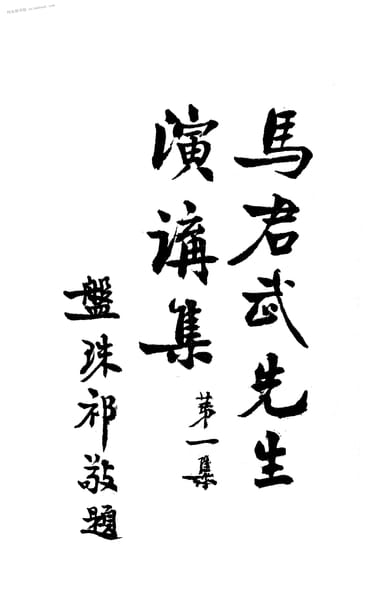 馬君武先生
演講集
第一集
盤珠祁敬題